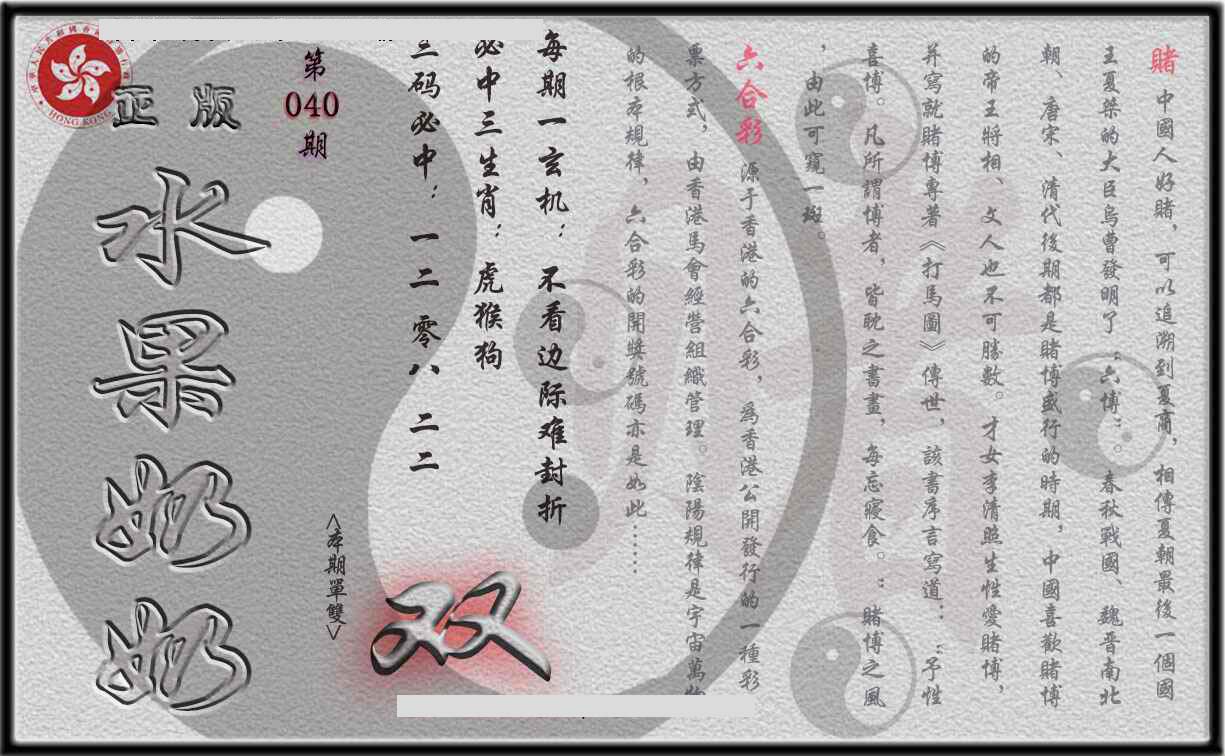 賭 中國人好賭，可以追溯到夏商，相傳夏朝最後一個國
王夏桀的大臣烏曹發明了“六博”。春秋戰國、魏晋南北
朝、唐宋、清代後期都是賭博盛行的時期，中國喜歡賭博
的帝王將相、文人也不可勝數。才女李清照生性愛賭博，
并寫就賭博專著《打馬圖》傳世，該書序言寫道：“予性
喜博。凡所謂博者，皆耽之晝書，每忘寢食。”賭博之風
，由此可窺一斑。
六合彩 源于香港的六合彩，為香港公開發行的一種彩
票方式，由香港馬會經營組織管理。陰陽規律是宇宙萬物
的根本規律，六合彩的開獎號碼亦是如此······
每期一玄机：不看边际难封折
必中三生肖：虎猴狗
三码必中：一二 零八 二二
双
第
040
期
<本期單雙>
正版
水果奶奶
HONG KONG